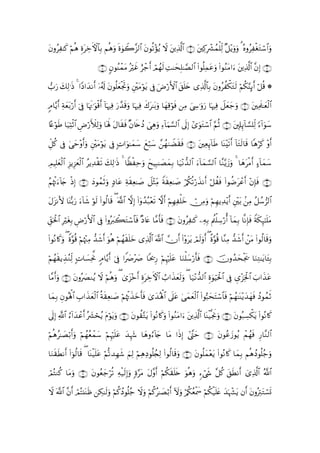 وَٱسْتَغْفِرُوهُ ۗ وَوَيْلٌ لِّلْمُشْرِكِينَ ٱلَّذِينَ لَا يُؤْتُونَ ٱلزَّكَوٰةَ وَهُم بِٱلْءَاخِرَةِ هُمْ كَـٰفِرُونَ
إِنَّ ٱلَّذِينَ ءَامَنُوا۟ وَعَمِلُوا۟ ٱلصَّـٰلِحَـٰتِ لَهُمْ أَجْرٌ غَيْرُ مَمْنُونٍ
۞ قُلْ أَئِنَّكُمْ لَتَكْفُرُونَ بِٱلَّذِى خَلَقَ ٱلْأَرْضَ فِى يَوْمَيْنِ وَتَجْعَلُونَ لَهُۥٓ أَندَادًا ۚ ذَٰلِكَ رَبُّ
ٱلْعَـٰلَمِينَ وَجَعَلَ فِيهَا رَوَٰسِىَ مِن فَوْقِهَا وَبَـٰرَكَ فِيهَا وَقَدَّرَ فِيهَآ أَقْوَٰتَهَا فِىٓ أَرْبَعَةِ أَيَّامٍ
سَوَآءً لِّلسَّآئِلِينَ ثُمَّ ٱسْتَوَىٰٓ إِلَى ٱلسَّمَآءِ وَهِىَ دُخَانٌ فَقَالَ لَهَا وَلِلْأَرْضِ ٱئْتِيَا طَوْعًا
أَوْ كَرْهًا قَالَتَآ أَتَيْنَا طَآئِعِينَ فَقَضَىٰهُنَّ سَبْعَ سَمَـٰوَاتٍ فِى يَوْمَيْنِ وَأَوْحَىٰ فِى كُلِّ
سَمَآءٍ أَمْرَهَا ۚ وَزَيَّنَّا ٱلسَّمَآءَ ٱلدُّنْيَا بِمَصَـٰبِيحَ وَحِفْظًا ۚ ذَٰلِكَ تَقْدِيرُ ٱلْعَزِيزِ ٱلْعَلِيمِ
فَإِنْ أَعْرَضُوا۟ فَقُلْ أَنذَرْتُكُمْ صَـٰعِقَةً مِّثْلَ صَـٰعِقَةِ عَادٍ وَثَمُودَ إِذْ جَآءَتْهُمُ
ٱلرُّسُلُ مِنۢ بَيْنِ أَيْدِيهِمْ وَمِنْ خَلْفِهِمْ أَلَّا تَعْبُدُوٓا۟ إِلَّا ٱللَّهَ ۖ قَالُوا۟ لَوْ شَآءَ رَبُّنَا لَأَنزَلَ
مَلَـٰٓئِكَةً فَإِنَّا بِمَآ أُرْسِلْتُم بِهِۦ كَـٰفِرُونَ فَأَمَّا عَادٌ فَٱسْتَكْبَرُوا۟ فِى ٱلْأَرْضِ بِغَيْرِ ٱلْحَقِّ
وَقَالُوا۟ مَنْ أَشَدُّ مِنَّا قُوَّةً ۖ أَوَلَمْ يَرَوْا۟ أَنَّ ٱللَّهَ ٱلَّذِى خَلَقَهُمْ هُوَ أَشَدُّ مِنْهُمْ قُوَّةً ۖ وَكَانُوا۟
بِـَٔايَـٰتِنَا يَجْحَدُونَ فَأَرْسَلْنَا عَلَيْهِمْ رِيحًا صَرْصَرًا فِىٓ أَيَّامٍ نَّحِسَاتٍ لِّنُذِيقَهُمْ
عَذَابَ ٱلْخِزْىِ فِى ٱلْحَيَوٰةِ ٱلدُّنْيَا ۖ وَلَعَذَابُ ٱلْءَاخِرَةِ أَخْزَىٰ ۖ وَهُمْ لَا يُنصَرُونَ وَأَمَّا
ثَمُودُ فَهَدَيْنَـٰهُمْ فَٱسْتَحَبُّوا۟ ٱلْعَمَىٰ عَلَى ٱلْهُدَىٰ فَأَخَذَتْهُمْ صَـٰعِقَةُ ٱلْعَذَابِ ٱلْهُونِ بِمَا
كَانُوا۟ يَكْسِبُونَ وَنَجَّيْنَا ٱلَّذِينَ ءَامَنُوا۟ وَكَانُوا۟ يَتَّقُونَ وَيَوْمَ يُحْشَرُ أَعْدَآءُ ٱللَّهِ إِلَى
ٱلنَّارِ فَهُمْ يُوزَعُونَ حَتَّىٰٓ إِذَا مَا جَآءُوهَا شَهِدَ عَلَيْهِمْ سَمْعُهُمْ وَأَبْصَـٰرُهُمْ
وَجُلُودُهُم بِمَا كَانُوا۟ يَعْمَلُونَ وَقَالُوا۟ لِجُلُودِهِمْ لِمَ شَهِدتُّمْ عَلَيْنَا ۖ قَالُوٓا۟ أَنطَقَنَا
ٱللَّهُ ٱلَّذِىٓ أَنطَقَ كُلَّ شَىْءٍ وَهُوَ خَلَقَكُمْ أَوَّلَ مَرَّةٍ وَإِلَيْهِ تُرْجَعُونَ وَمَا كُنتُمْ
تَسْتَتِرُونَ أَن يَشْهَدَ عَلَيْكُمْ سَمْعُكُمْ وَلَآ أَبْصَـٰرُكُمْ وَلَا جُلُودُكُمْ وَلَـٰكِن ظَنَنتُمْ أَنَّ ٱللَّهَ لَا